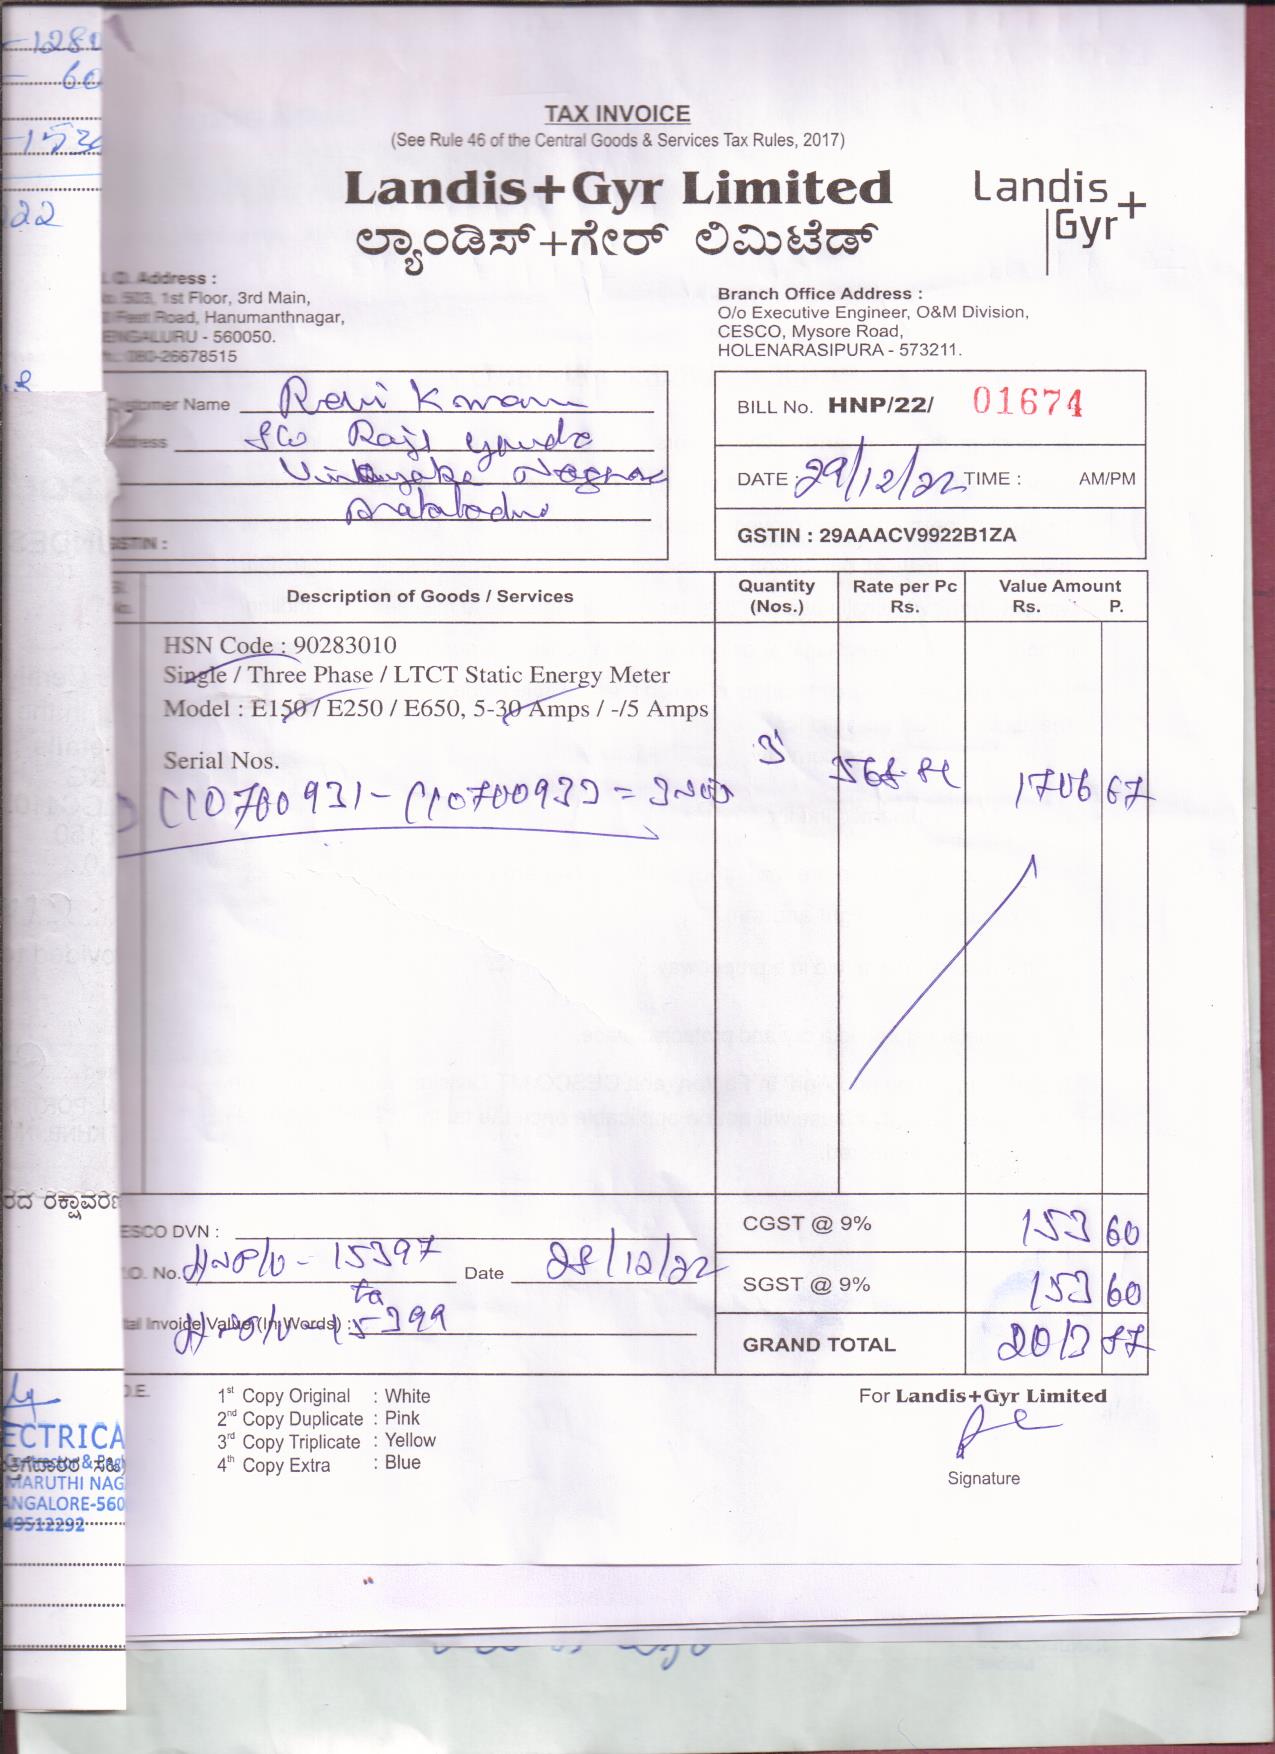 -1280
- 60
22
TAX INVOICE
(See Rule 46 of the Central Goods & Services Tax Rules, 2017)
Landis+Gyr Limited
Landis
Gyr+
ಲ್ಯಾಂಡಿಸ್+ಗೇರ್ ಲಿಮಿಟೆಡ್
. O. Address :
503, 1st Floor, 3rd Main,
Feet Road, Hanumanthnagar,
ENGALURU - 560050.
: 080-26678515
Branch Office Address :
O/o Executive Engineer, O&M Division,
CESCO, Mysore Road,
HOLENARASIPURA - 573211.
Customer Name Ravi Kumar
Address S/o
GSTIN :
BILL No. HNP/22/ 01674
DATE : 29/12/22 TIME : AM/PM
GSTIN : 29AAACV9922B1ZA
Description of Goods / Services
Quantity (Nos.)
Rate per Pc Rs.
Value Amount Rs. P.
HSN Code : 90283010
Single / Three Phase / LTCT Static Energy Meter
Model : E150 / E250 / E650, 5-30 Amps / -/5 Amps
Serial Nos.
C10700931 - C10700933 = 3 3 1706 67
ರದ ರಕ್ಷಾವರಣ
ESCO DVN :
.O. No. HNP/V - 15397 Date 28/12/22
to
tal Invoice Value (In Words) : HNP/V - 15399
CGST @ 9% 153 60
SGST @ 9% 153 60
GRAND TOTAL 2013 87
O.E.
1st Copy Original : White
2nd Copy Duplicate : Pink
3rd Copy Triplicate : Yellow
4th Copy Extra : Blue
For Landis+Gyr Limited
Signature
ECTRICA
MARUTHI NAG
ANGALORE-560
49512292